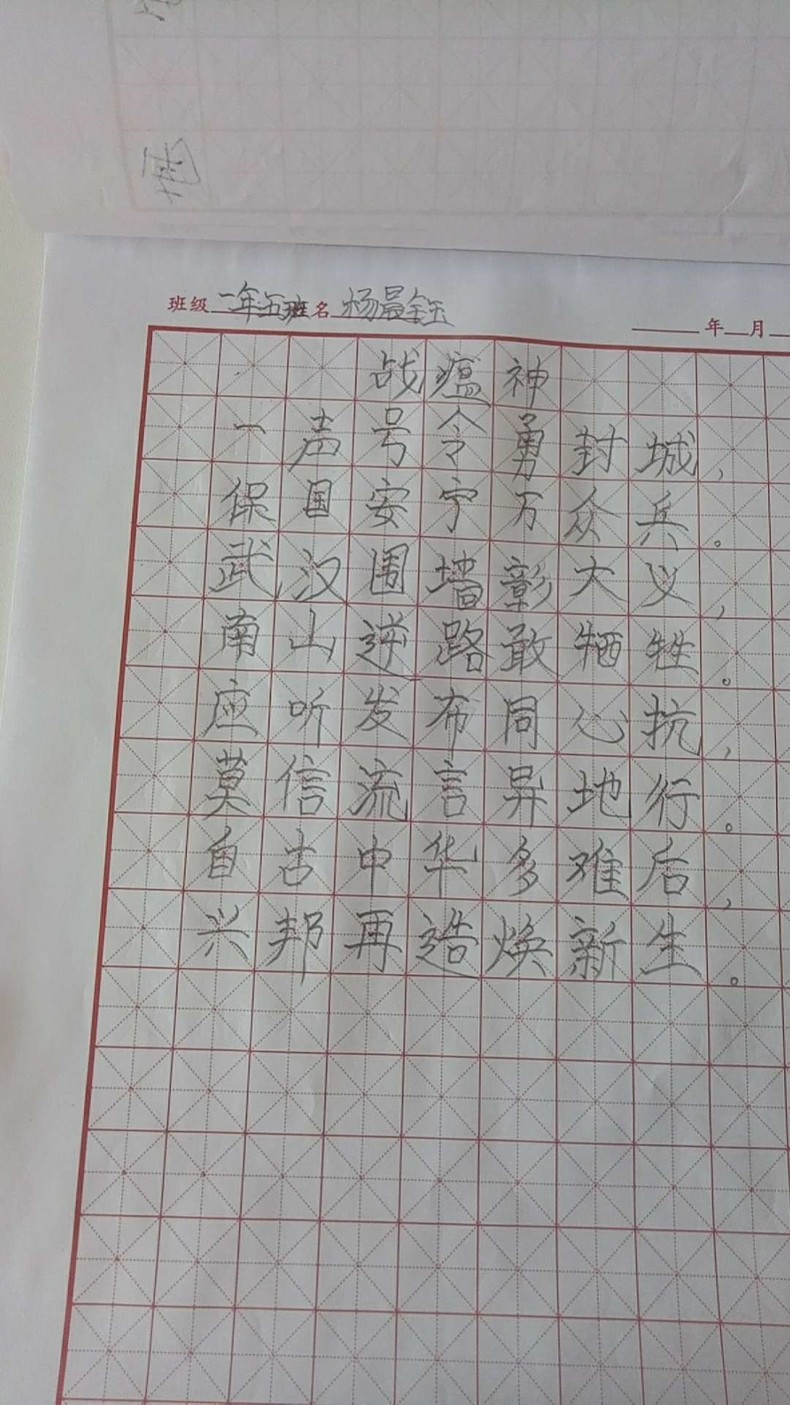 班级 一年五班 名 杨晨钰
年 月
战瘟神
一声号令勇封城，
保国安宁万众兵。
武汉围墙彰大义，
南山逆路敢牺牲。
应听发布同心抗，
莫信流言异地行。
自古中华多难后，
兴邦再造焕新生。